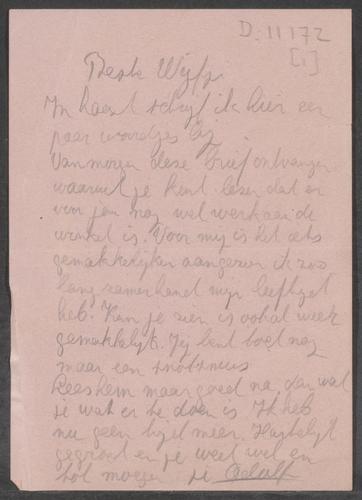 D.11172
[1]
Beste Wijfje
In haast schrijf ik hier een
paar woordjes bij
Van morgen deze brief ontvangen
waaruit je kunt lezen dat er
voor jou nog wel werk aan de
winkel is. Voor mij is het iets
gemakkelijker aangezien ik zoo
lang zamerhand mijn leeftijd
heb. Kan je zien is ook al weer
gemakkelijk. Jij bent toch nog
maar een snotneus
Lees hem maar goed na dan wat
je wat er te doen is Ik heb
nu geen tijd meer. Hartelijk
gegroet en je weet wel en
tot morgen je